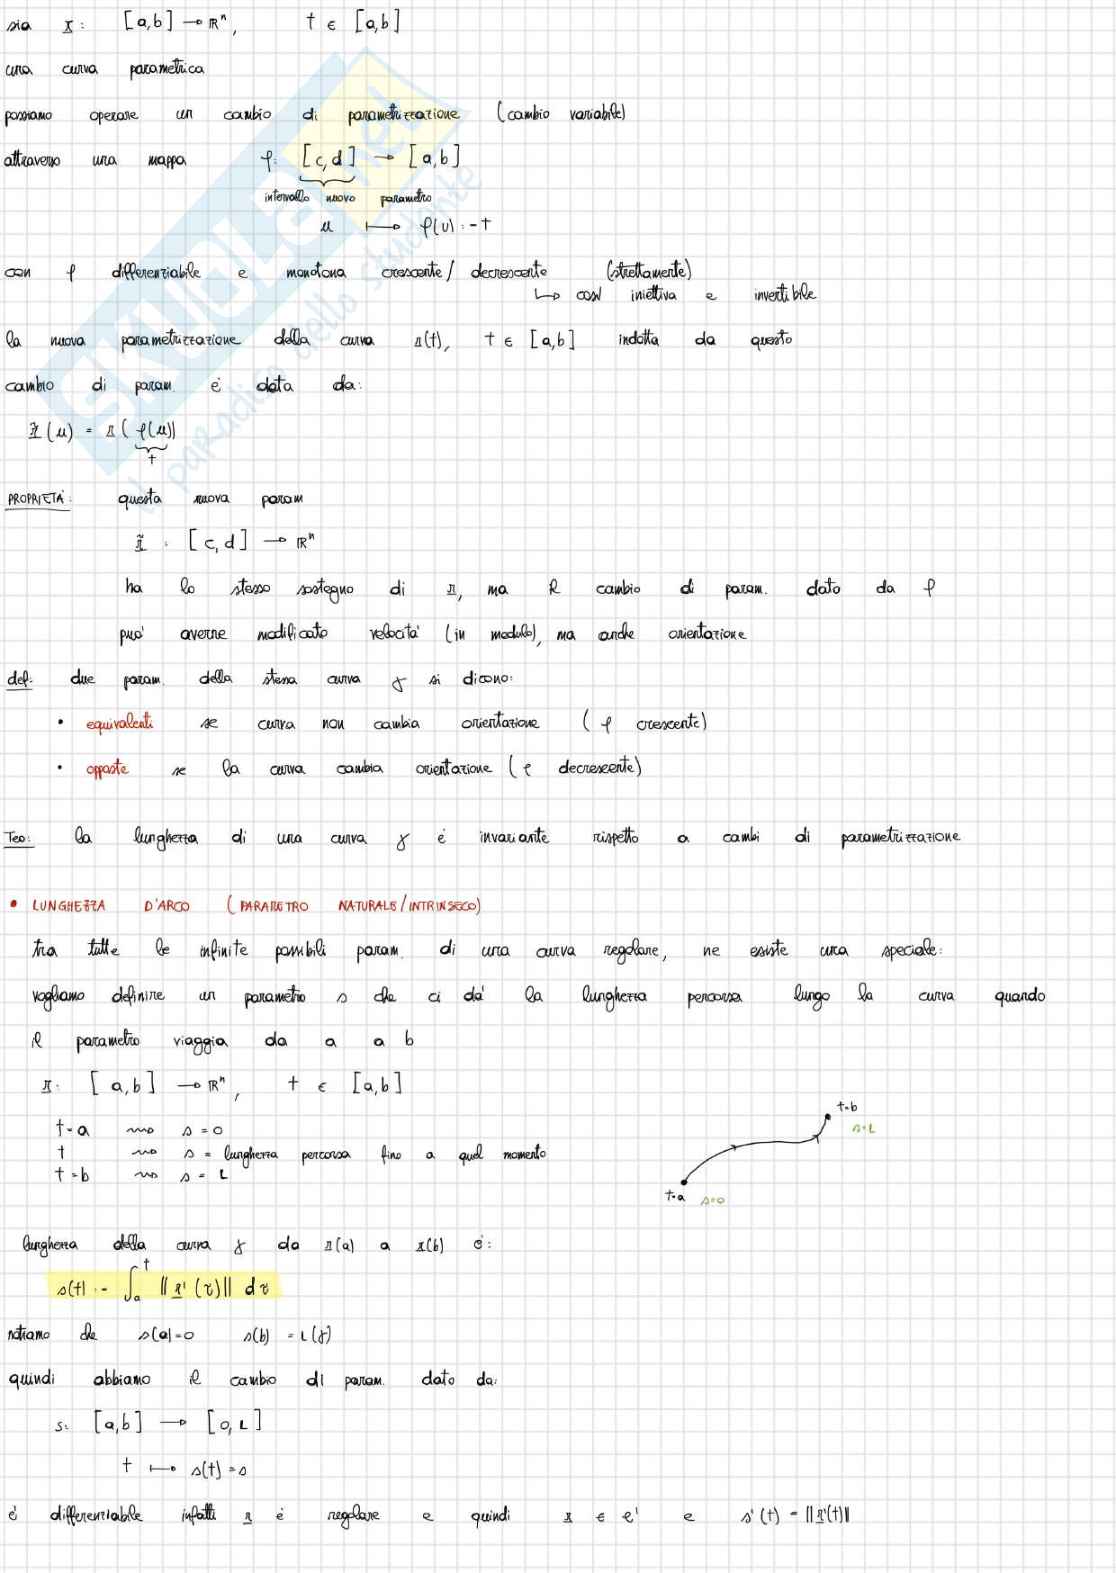 sia r: [a,b] → ℝⁿ, t ∈ [a,b]
una curva parametrica
possiamo operare un cambio di parametrizzazione (cambio variabile)
attraverso una mappa φ: [c,d] → [a,b]
intervallo nuovo parametro
u ↦ φ(u) := t
con φ differenziabile e monotona crescente/ decrescente (strettamente)
↳ così iniettiva e invertibile
la nuova parametrizzazione della curva r(t), t ∈ [a,b] indotta da questo
cambio di param. è data da:
r̃(u) = r(φ(u))
t
PROPRIETÀ: questa nuova param
r̃ : [c,d] → ℝⁿ
ha lo stesso sostegno di r, ma il cambio di param. dato da φ
può averne modificato velocità (in modulo), ma anche orientazione
def: due param. della stessa curva γ si dicono:
• equivalenti se curva non cambia orientazione (φ crescente)
• opposte se la curva cambia orientazione (φ decrescente)
Teo: la lunghezza di una curva γ è invariante rispetto a cambi di parametrizzazione
• LUNGHEZZA D'ARCO (PARAMETRO NATURALE/INTRINSECO)
tra tutte le infinite possibili param. di una curva regolare, ne esiste una speciale:
vogliamo definire un parametro s che ci dà la lunghezza percorsa lungo la curva quando
il parametro viaggia da a a b
r: [a,b] → ℝⁿ, t ∈ [a,b]
t=a ⇝ s=0
t ⇝ s = lunghezza percorsa fino a quel momento
t=b ⇝ s = L
t=b
s=L
t=a s=0
lunghezza della curva γ da r(a) a r(b) è:
s(t) := ∫ₐᵗ ||r'(τ)|| dτ
notiamo che s(a)=0 s(b) = L(γ)
quindi abbiamo il cambio di param. dato da:
s: [a,b] → [0,L]
t ↦ s(t)=s
è differenziabile infatti r è regolare e quindi r ∈ C¹ e s'(t) = ||r'(t)||
SKUOLA.net
il paradiso dello studente